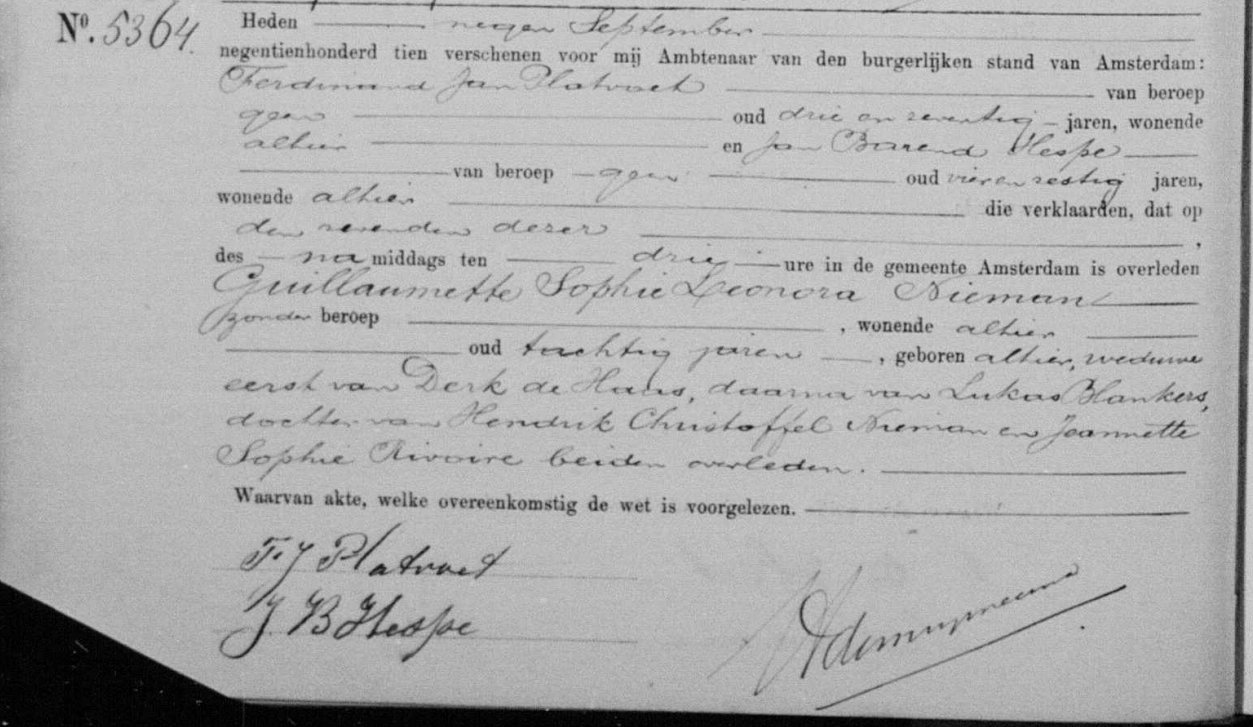 Nº. 5364.
Heden negen September
negentienhonderd tien verschenen voor mij Ambtenaar van den burgerlijken stand van Amsterdam:
Ferdinand Jan Platvoet van beroep
geen oud drie en zeventig jaren, wonende
alhier en Jan Barend Hespe
van beroep geen oud vier en zestig jaren,
wonende alhier die verklaarden, dat op
den zevenden dezer,
des na middags ten drie ure in de gemeente Amsterdam is overleden
Guillaumette Sophie Leonora Nieman
zonder beroep, wonende alhier
oud tachtig jaren, geboren alhier, weduwe
eerst van Derk de Haas, daarna van Lukas Blankers,
dochter van Hendrik Christoffel Nieman en Jeannette
Sophie Rivoire beiden overleden.
Waarvan akte, welke overeenkomstig de wet is voorgelezen.
F. J Platvoet
J B Hespe